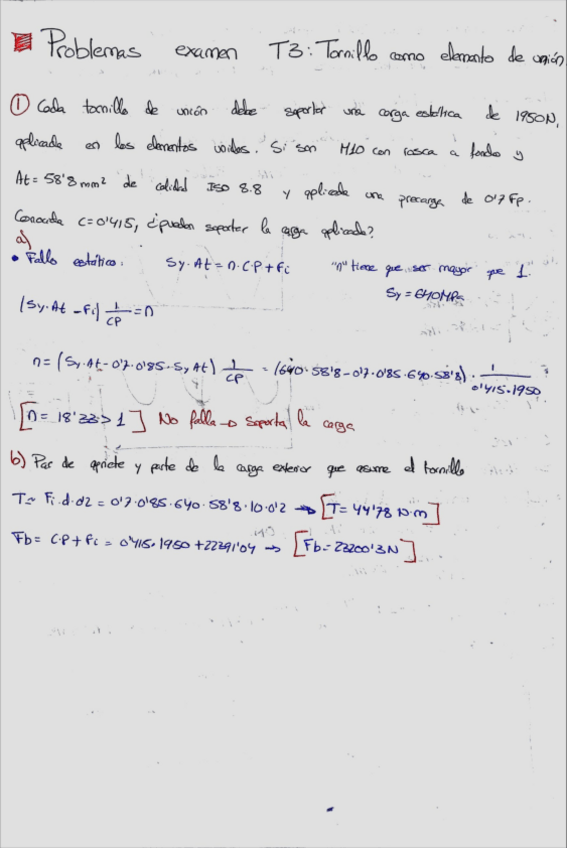 Problemas examen T3: Tornillo como elemento de unión
① Cada tornillo de unión debe soportar una carga estática de 1950N,
aplicada en los elementos unidos. Si son M10 con rosca a fondo y
At = 58'8 mm² de calidad ISO 8.8 y aplicada una precarga de 0'7 Fp.
Conocida c=0'415, ¿pueden soportar la carga aplicada?
a)
• Fallo estático: Sy·At = n·CP+Fi "n" tiene que ser mayor que 1.
Sy = 640MPa
(Sy·At - Fi) 1/CP = n
n = (Sy·At - 0'7·0'85·Sy At) 1/CP = (640·58'8 - 0'7·0'85·640·58'8) · 1/0'415·1950
[n = 18'33 > 1] No falla → Soporta la carga
b) Par de apriete y parte de la carga exterior que asume el tornillo
T = Fi·d·02 = 0'7·0'85·640·58'8·10·0'2 → [T = 44'78 N·m]
Fb = C·P + Fi = 0'415·1950 + 22391'04 → [Fb = 23200'3N]